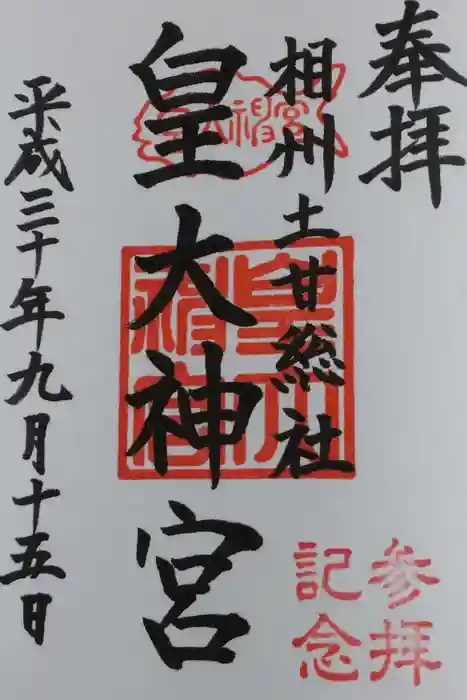 奉拝
相州土甘総社
皇大神宮
平成三十年九月十五日
皇大神宮
参拝
記念